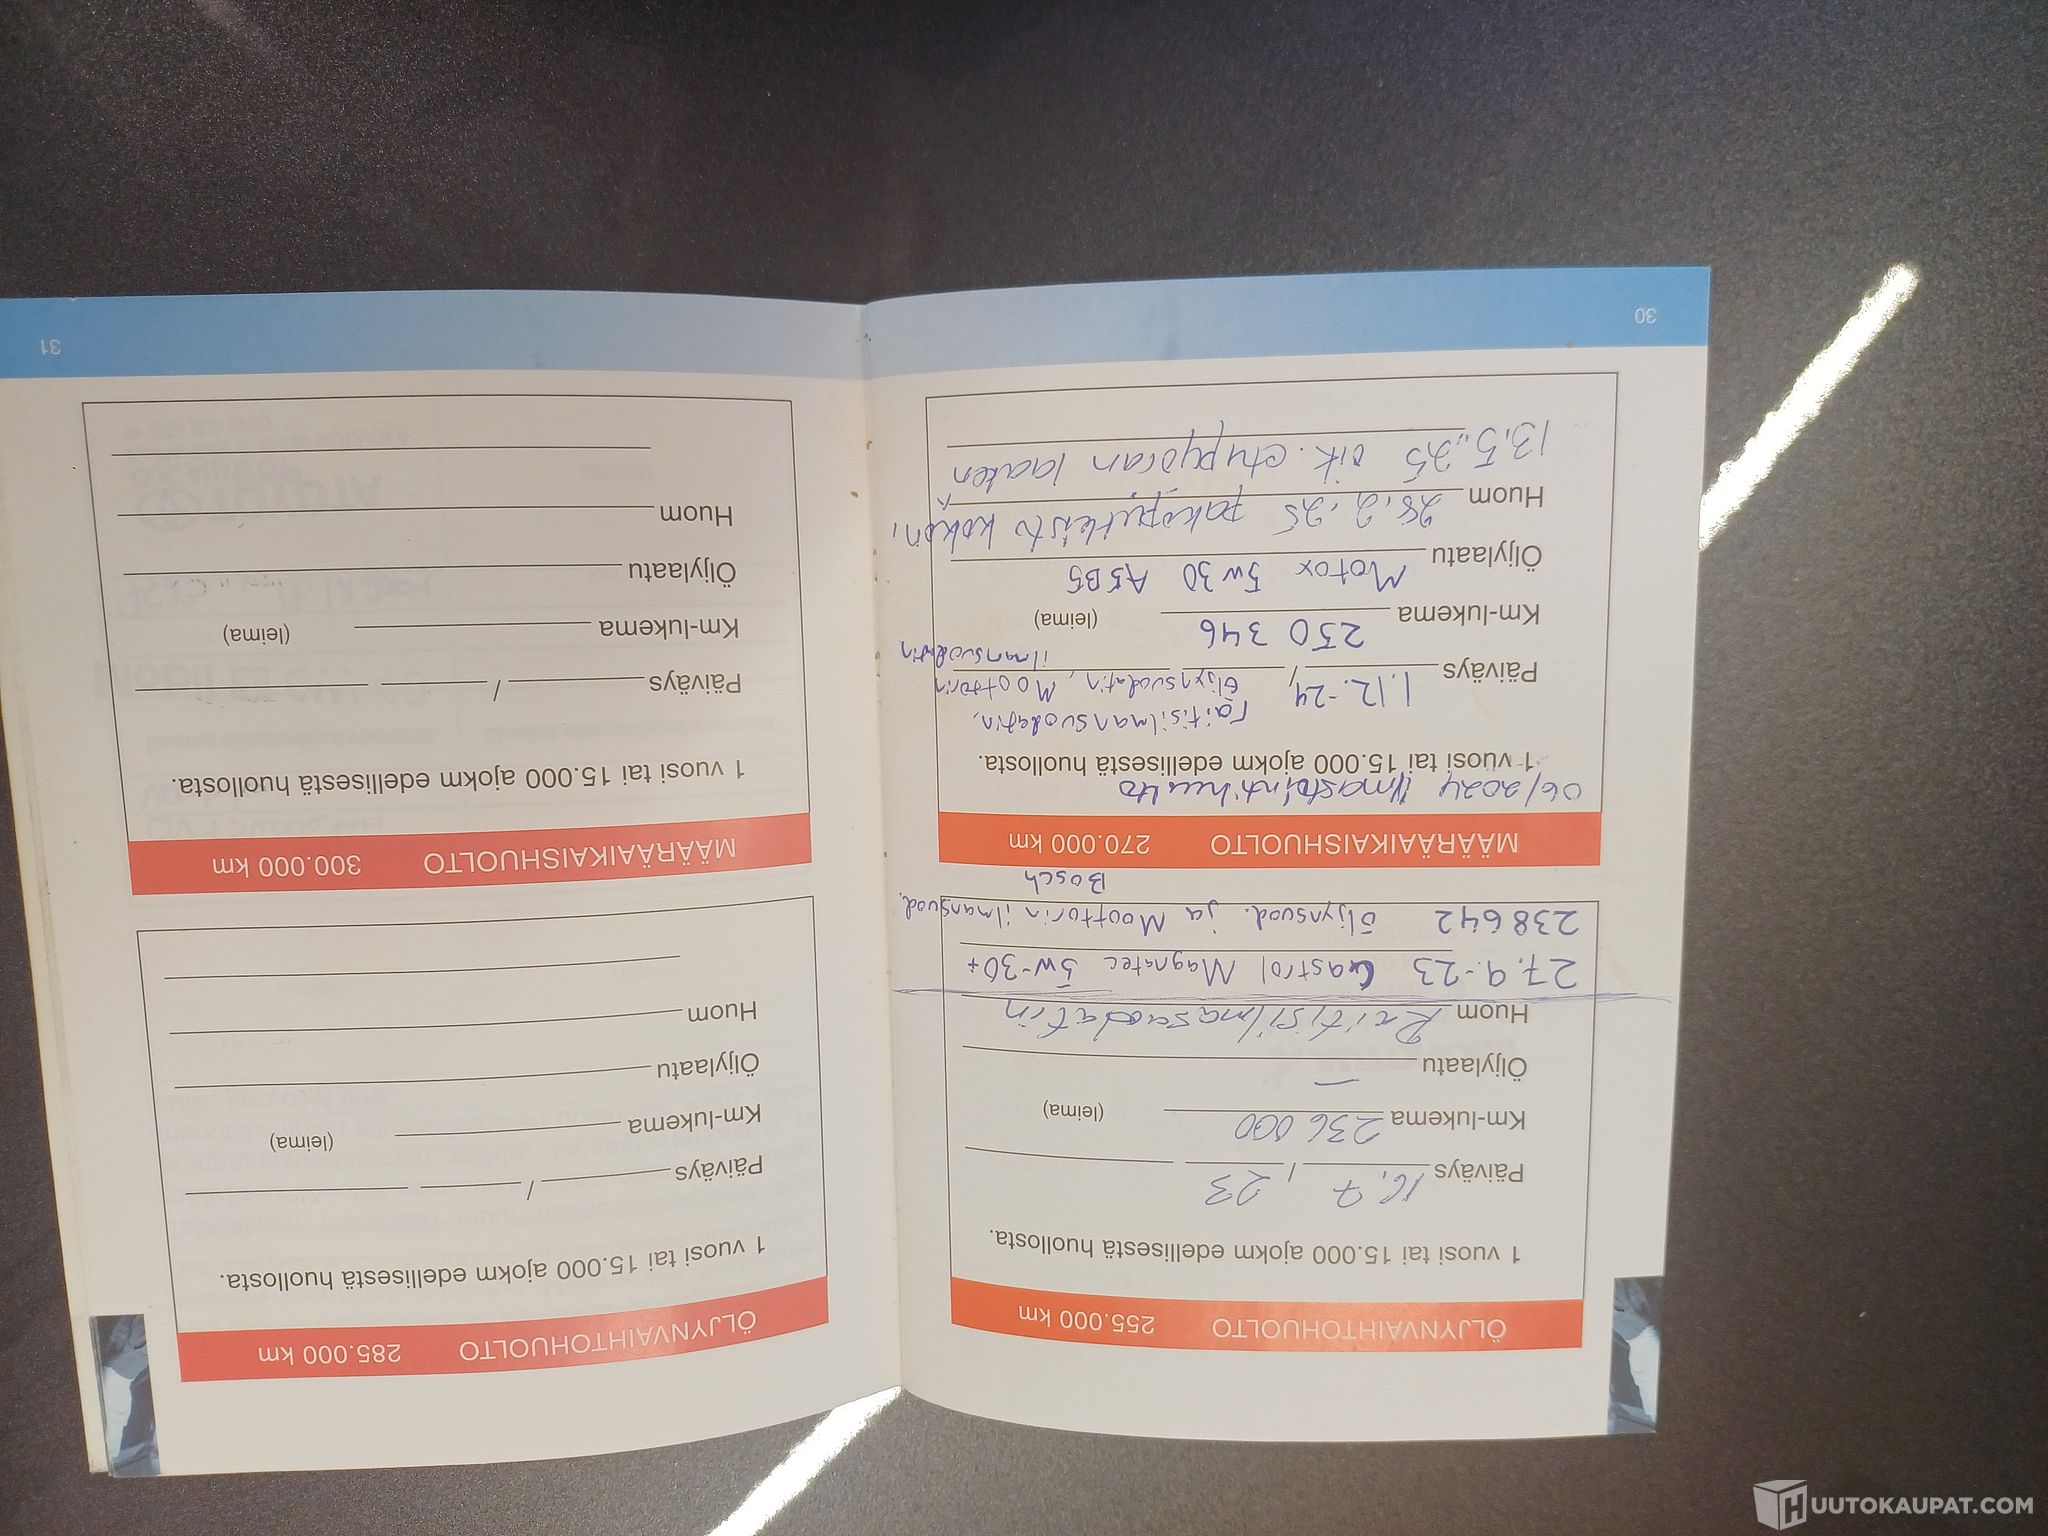 ÖLJYNVAIHTOHUOLTO 255.000 km
1 vuosi tai 15.000 ajokm edellisestä huollosta.
Päiväys 16. 7 / 23
Km-lukema 236 000 (leima)
Öljylaatu —
Huom Raitisilmasuodatin
27.9.-23 Castrol Magnatec 5W-30+
238642 öljynsuod. ja Moottorin ilmansuod.
Bosch
MÄÄRÄAIKAISHUOLTO 270.000 km
06/2024 Ilmastointihuolto
1 vuosi tai 15.000 ajokm edellisestä huollosta.
Raitisilmansuodatin,
Päiväys 1.12.-24 / öljynsuodatin, Moottorin
ilmansuodatin
Km-lukema 250 346 (leima)
Öljylaatu Motox 5w30 A5B5
Huom 28.2.25 pakoputkisto kokon.
13.5.25 oik. etupyörän laakeri
30
ÖLJYNVAIHTOHUOLTO 285.000 km
1 vuosi tai 15.000 ajokm edellisestä huollosta.
Päiväys /
Km-lukema (leima)
Öljylaatu
Huom
MÄÄRÄAIKAISHUOLTO 300.000 km
1 vuosi tai 15.000 ajokm edellisestä huollosta.
Päiväys /
Km-lukema (leima)
Öljylaatu
Huom
31
HUUTOKAUPAT.COM